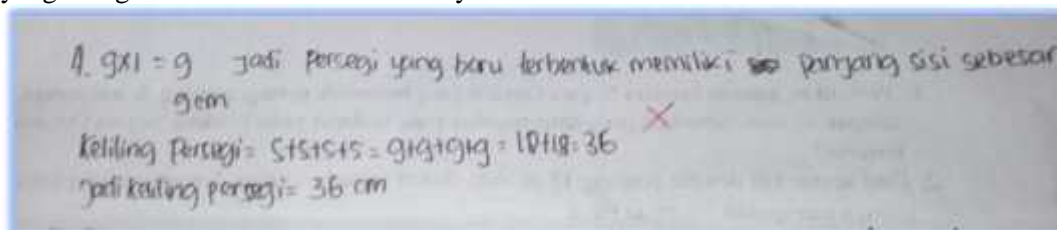 4. 9x1 = 9 Jadi persegi yang baru terbentuk memiliki panjang sisi sebesar
9cm
Keliling Persegi = s+s+s+s = 9+9+9+9 = 18+18 = 36
Jadi keliling persegi = 36 cm